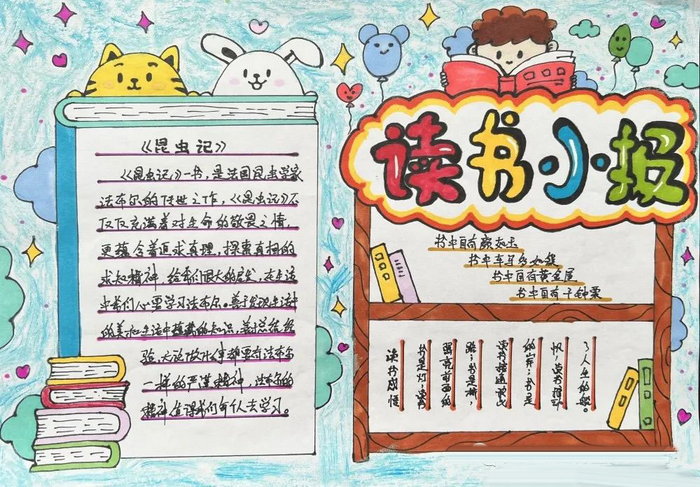 读书小报
《昆虫记》
《昆虫记》一书,是法国昆虫学家
法布尔的传世之作,《昆虫记》不
仅仅充满着对生命的敬畏之情,
更蕴含着追求真理,探索真相的
求知精神 给我们很大的启发,在生活
中我们必要学习法布尔,善于发现生活中
的美和生活中蕴藏的知识,善于总结经
验,无论做什么事都要有法布尔
一样的严谨精神,法布尔的
精神值得我们每个人去学习。
书中自有颜如玉
书中车马多如簇
书中自有黄金屋
书中自有千钟粟
读书感悟
书是灯,读书
照亮前面的
路;书是桥,
读书接通彼岸
的岸;书是
帆,读书推动
了人生的船。